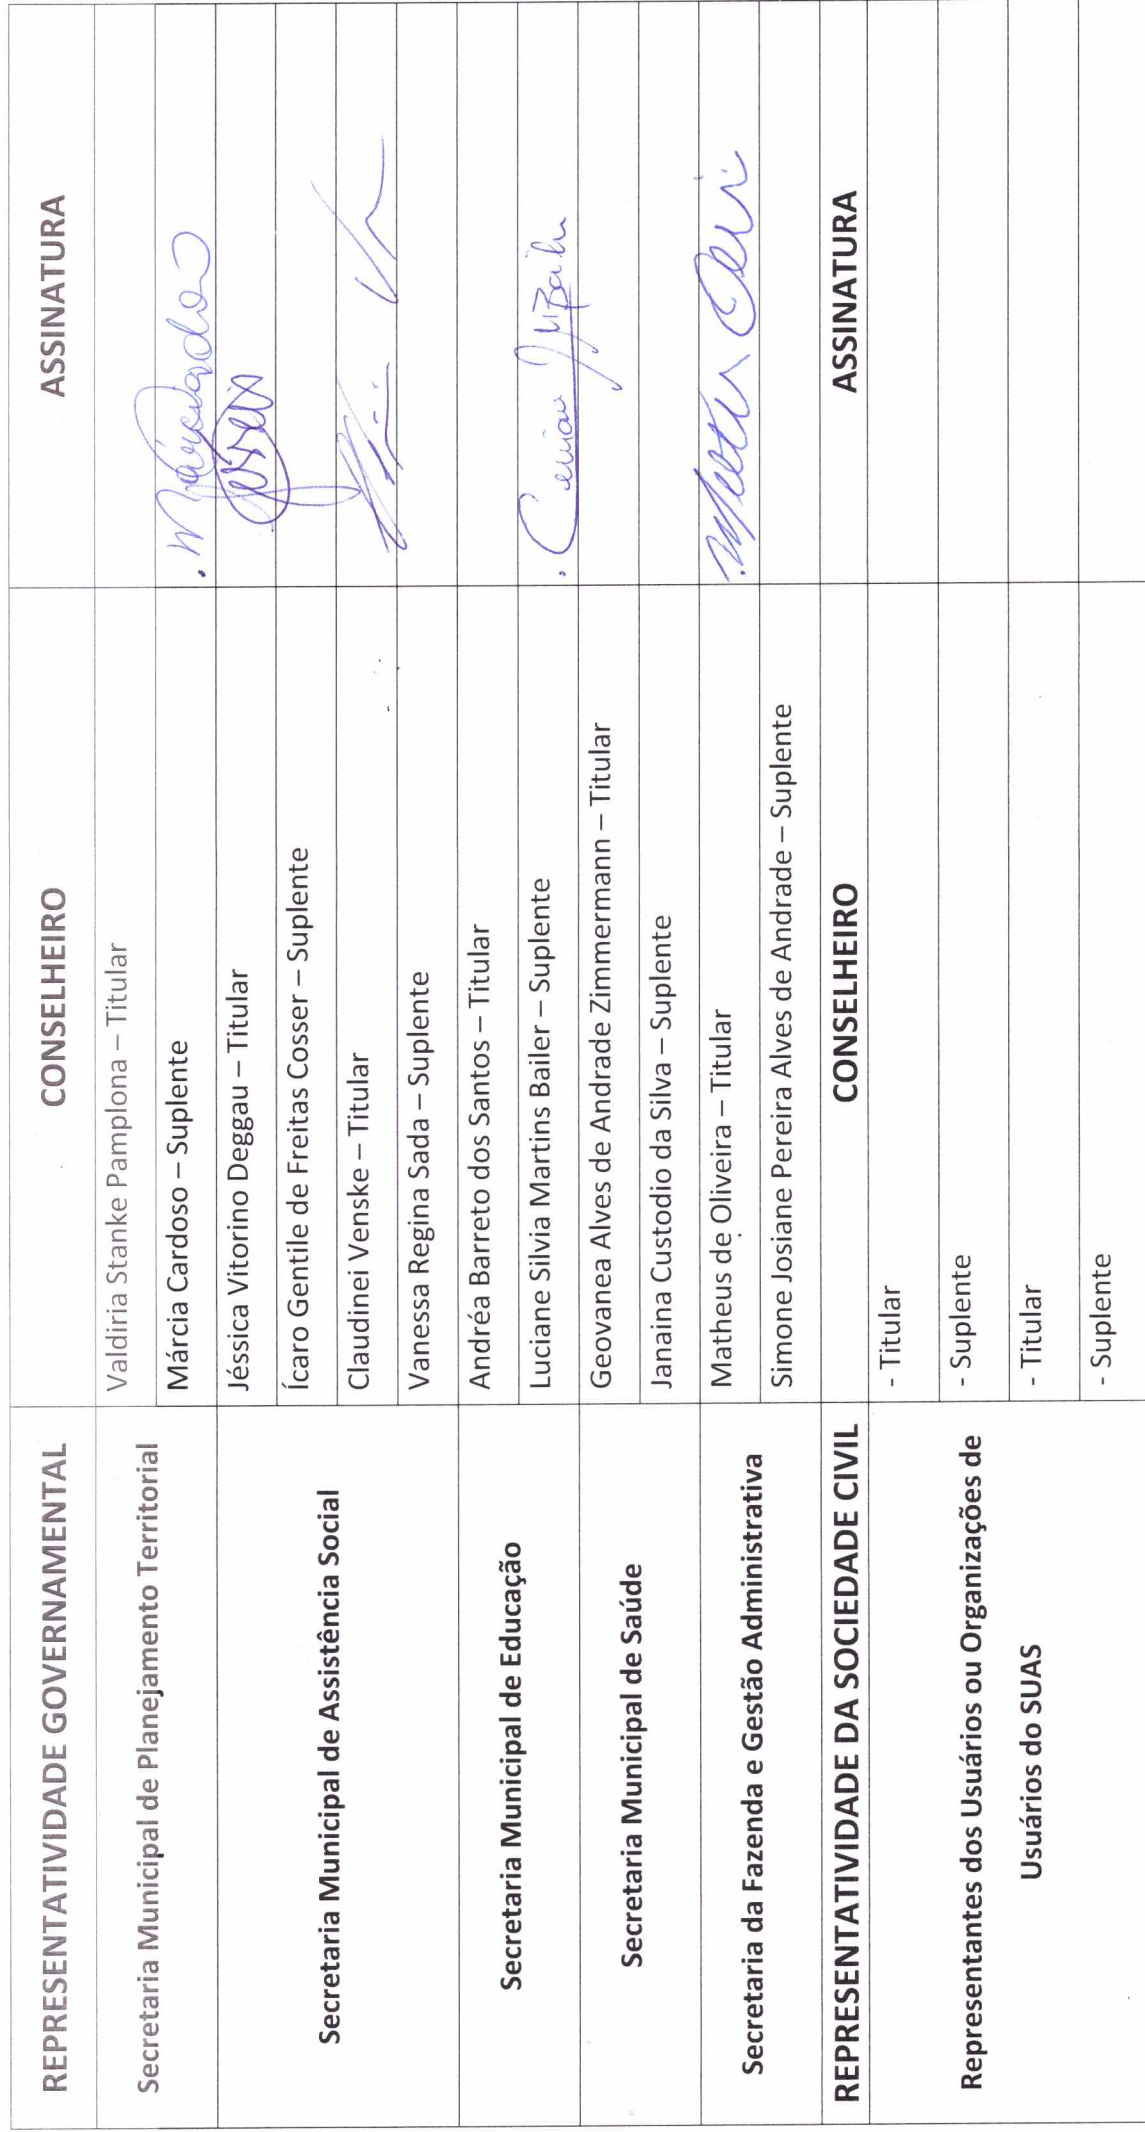 REPRESENTATIVIDADE GOVERNAMENTAL
CONSELHEIRO
ASSINATURA
Secretaria Municipal de Planejamento Territorial
Valdiria Stanke Pamplona – Titular
Márcia Cardoso – Suplente
Secretaria Municipal de Assistência Social
Jéssica Vitorino Deggau – Titular
Ícaro Gentile de Freitas Cosser – Suplente
Claudinei Venske – Titular
Vanessa Regina Sada – Suplente
Secretaria Municipal de Educação
Andréa Barreto dos Santos – Titular
Luciane Silvia Martins Bailer – Suplente
Secretaria Municipal de Saúde
Geovanea Alves de Andrade Zimmermann – Titular
Janaina Custodio da Silva – Suplente
Secretaria da Fazenda e Gestão Administrativa
Matheus de Oliveira – Titular
Simone Josiane Pereira Alves de Andrade – Suplente
REPRESENTATIVIDADE DA SOCIEDADE CIVIL
CONSELHEIRO
ASSINATURA
Representantes dos Usuários ou Organizações de
Usuários do SUAS
- Titular
- Suplente
- Titular
- Suplente